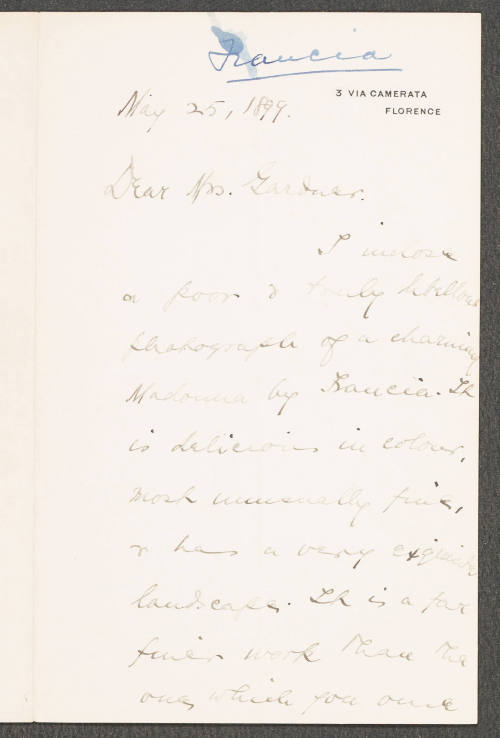 Francia
3 VIA CAMERATA
FLORENCE
May 25, 1899.
Dear Mrs. Gardner.
I inclose
a poor & truly libellous
photograph of a charming
Madonna by Francia. It
is delicious in colour,
most unusually fine,
& has a very exquisite
landscape. It is a far
finer work than the
one, which you once